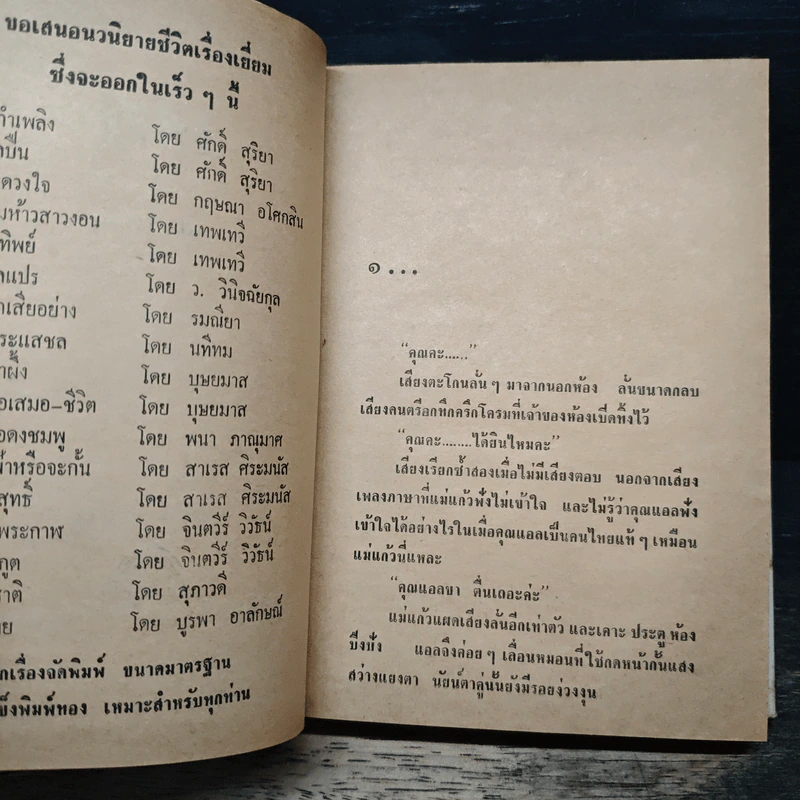 ขอเสนอนวนิยายชีวิตเรื่องเยี่ยม
ซึ่งจะออกในเร็ว ๆ นี้
โดย ศักดิ์ สุริยา
โดย ศักดิ์ สุริยา
ดวงใจ โดย กฤษณา อโศกสิน
ห้าวสาวงอน โดย เทพเทวี
ทิพย์ โดย เทพเทวี
แปร โดย ว. วินิจฉัยกุล
เสียอย่าง โดย รมณียา
ระแสชล โดย นทีทม
ผึ้ง โดย บุษยมาส
อเสมอ-ชีวิต โดย บุษยมาส
อดงชมพู โดย พนา ภาณุมาศ
ฟ้าหรือจะกั้น โดย สาเรส ศิระมนัส
สุทธิ์ โดย สาเรส ศิระมนัส
พระกาฬ โดย จินตวีร์ วิวัธน์
กูต โดย จินตวีร์ วิวัธน์
ชาติ โดย สุภาวดี
โดย บูรพา อาลักษณ์
กเรื่องจัดพิมพ์ ขนาดมาตรฐาน
ข็งพิมพ์ทอง เหมาะสำหรับทุกท่าน
๑ ...
“คุณคะ......”
เสียงตะโกนลั่น ๆ มาจากนอกห้อง ลั่นขนาดกลบ
เสียงดนตรีอกทึกครึกโครมที่เจ้าของห้องเปิดทิ้งไว้
“คุณคะ........ได้ยินไหมคะ”
เสียงเรียกซ้ำสองเมื่อไม่มีเสียงตอบ นอกจากเสียง
เพลงภาษาที่แม่แก้วฟังไม่เข้าใจ และไม่รู้ว่าคุณแอลฟัง
เข้าใจได้อย่างไรในเมื่อคุณแอลเป็นคนไทยแท้ ๆ เหมือน
แม่แก้วนี่แหละ
“คุณแอลขา ตื่นเถอะค่ะ”
แม่แก้วแผดเสียงลั่นอีกเท่าตัว และเคาะ ประตู ห้อง
ปึงปัง แอลจึงค่อย ๆ เลื่อนหมอนที่ใช้กดหน้ากั้นแสง
สว่างแยงตา นัยน์ตาคู่นั้นยังมีรอยง่วงงุน